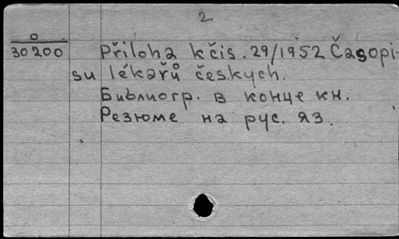 2
0
30200 Příloha k čis. 29/1952 Časopi-
su lékařů českych.
Библиогр. в конце кн.
Резюме на рус. яз.